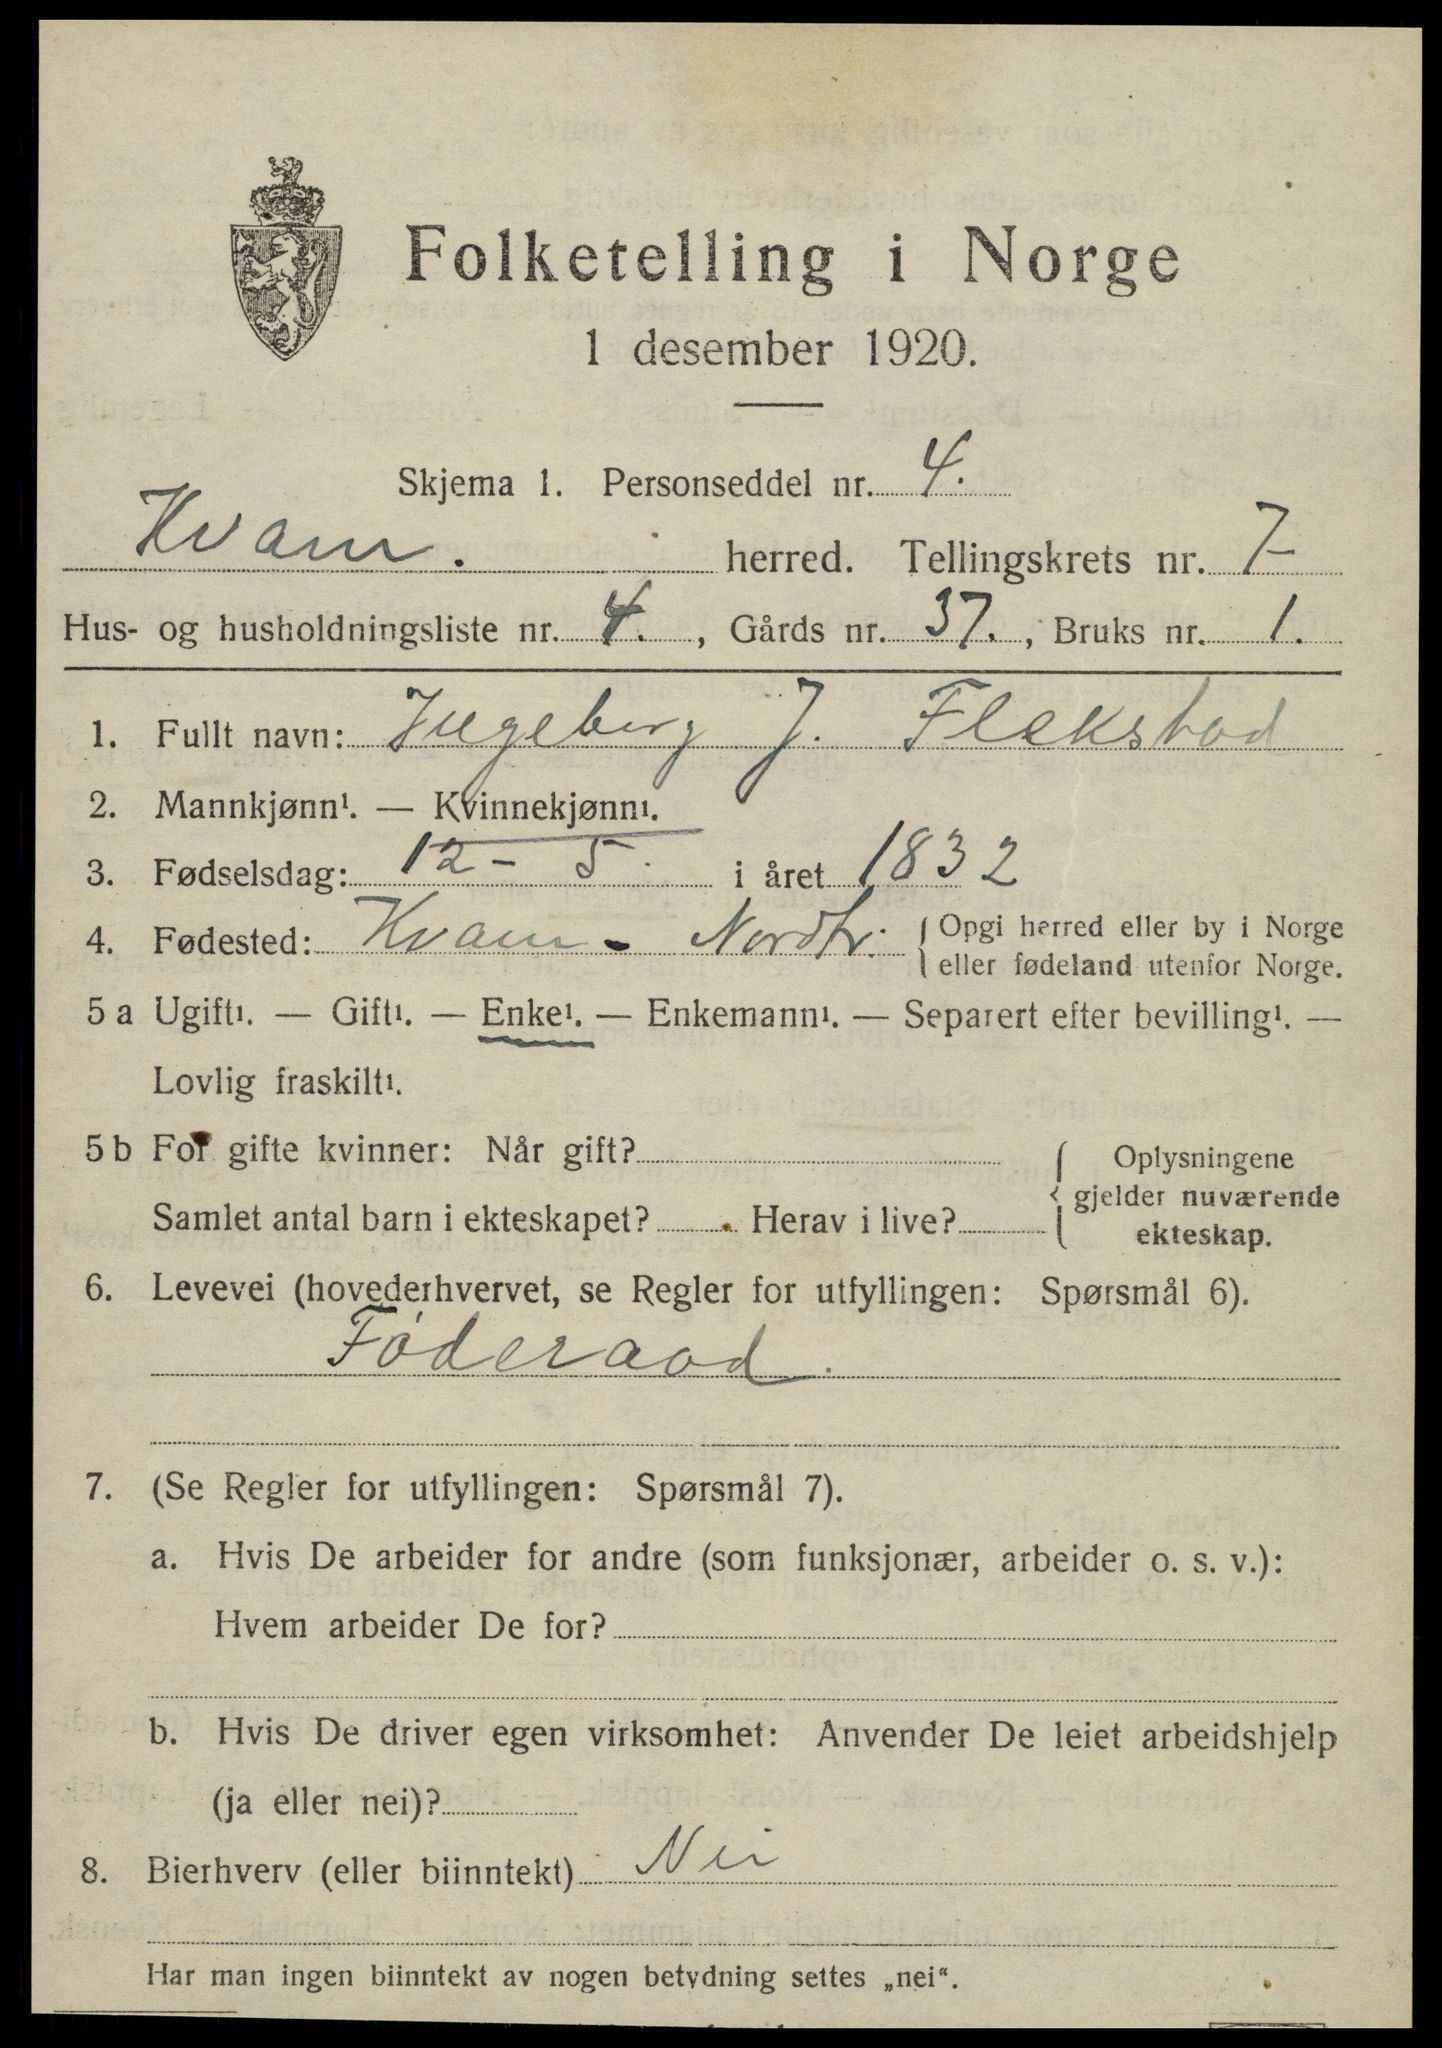 Folketelling i Norge
1 desember 1920.
Skjema 1. Personseddel nr. 4.
Kvam. herred. Tellingskrets nr. 7
Hus- og husholdningsliste nr. 4. , Gårds nr. 37. , Bruks nr. 1.
1. Fullt navn: Ingeborg J. Flekstad
2. Mannkjønn¹. — Kvinnekjønn¹.
3. Fødselsdag: 12 - 5. i året 1832
4. Fødested: Kvam - Nordtr. { Opgi herred eller by i Norge
eller fødeland utenfor Norge.
5 a Ugift¹. — Gift¹. — Enke¹. — Enkemann¹. — Separert efter bevilling¹. —
Lovlig fraskilt¹.
5 b For gifte kvinner: Når gift?
Samlet antal barn i ekteskapet? Herav i live?
Oplysningene
gjelder nuværende
ekteskap.
6. Levevei (hovederhvervet, se Regler for utfyllingen: Spørsmål 6).
Føderaad.
7. (Se Regler for utfyllingen: Spørsmål 7).
a. Hvis De arbeider for andre (som funksjonær, arbeider o. s. v.):
Hvem arbeider De for?
b. Hvis De driver egen virksomhet: Anvender De leiet arbeidshjelp
(ja eller nei)?
8. Bierhverv (eller biinntekt) Nei
Har man ingen biinntekt av nogen betydning settes „nei“.